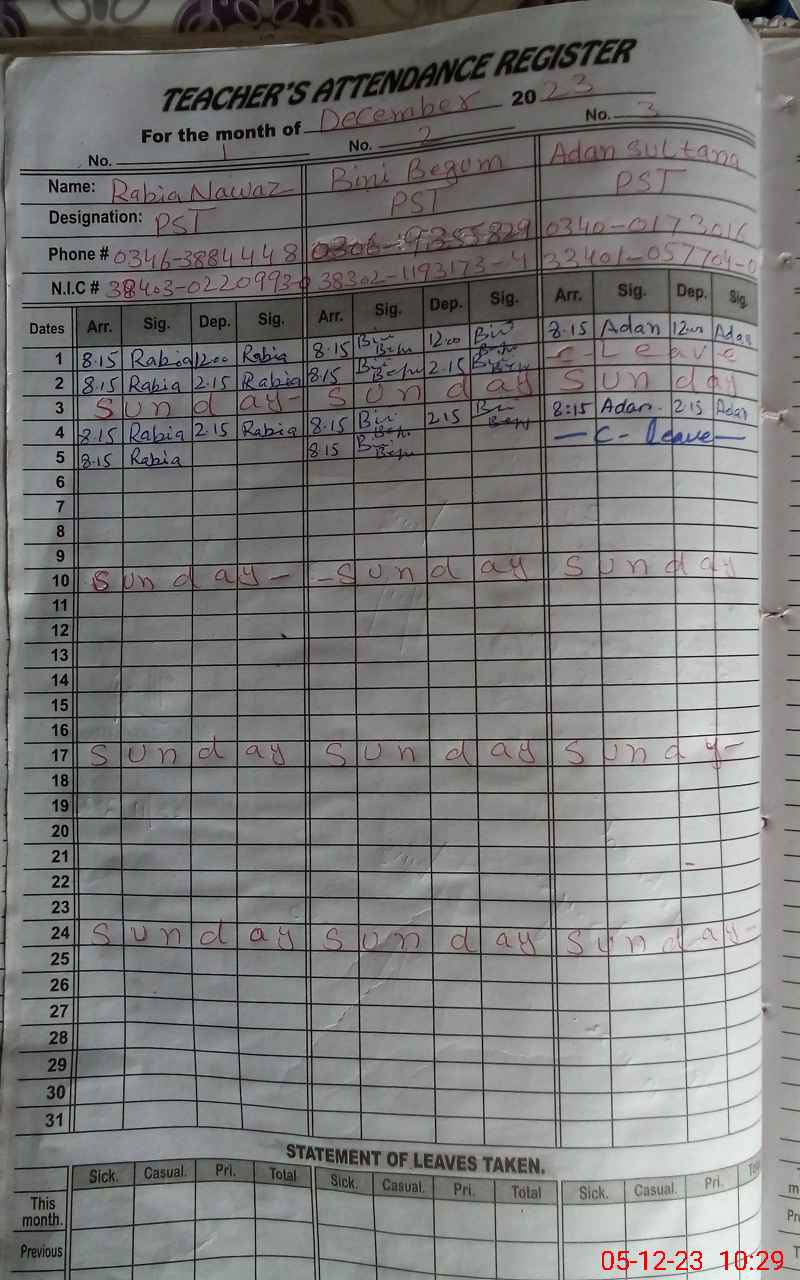 TEACHER'S ATTENDANCE REGISTER
For the month of December 2023
No. 1 No. 2 No. 3
Name: Rabia Nawaz Bini Begum Adan Sultana
Designation: PST PST PST
Phone # 0346-3884448 0306-9355829 0340-0173016
N.I.C # 38403-0220993- 38302-1193173-4 33401-057704-0
Dates Arr. Sig. Dep. Sig. Arr. Sig. Dep. Sig. Arr. Sig. Dep. Sig.
1 8.15 Rabia 1200 Rabia 8.15 Bini Begum 12.00 Bini Begum 8.15 Adan 12.00 Adan
2 8.15 Rabia 2.15 Rabia 8.15 Bini Begum 2.15 Bini Begum C-Leave
3 Sunday- Sunday Sunday
4 8.15 Rabia 2.15 Rabia 8.15 Bini Begum 2.15 Bini Begum 8:15 Adan. 2.15 Adan
5 8.15 Rabia 8.15 Bini Begum — C - Leave —
6
7
8
9
10 Sunday- -Sunday Sunday
11
12
13
14
15
16
17 Sunday Sunday Sundy-
18
19
20
21
22
23
24 Sunday Sunday Sunday-
25
26
27
28
29
30
31
STATEMENT OF LEAVES TAKEN.
Sick. Casual. Pri. Total Sick. Casual. Pri. Total Sick. Casual. Pri.
This month.
Previous
05-12-23 10:29